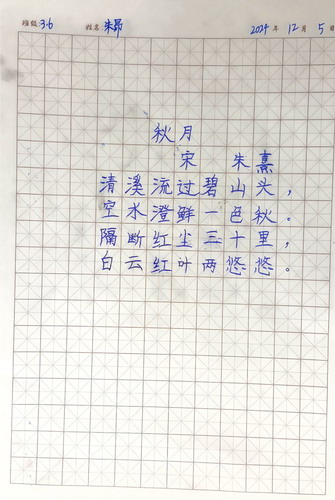 班级 3.6 姓名 朱昂 2024 年 12 月 5 日
秋月
宋 朱熹
清溪流过碧山头，
空水澄鲜一色秋。
隔断红尘三十里，
白云红叶两悠悠。